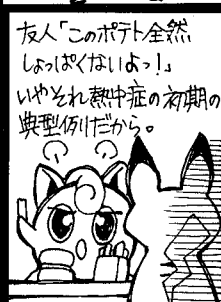 友人「このポテト全然
しょっぱくないよっ！」
いやそれ熱中症の初期の
典型例だから。